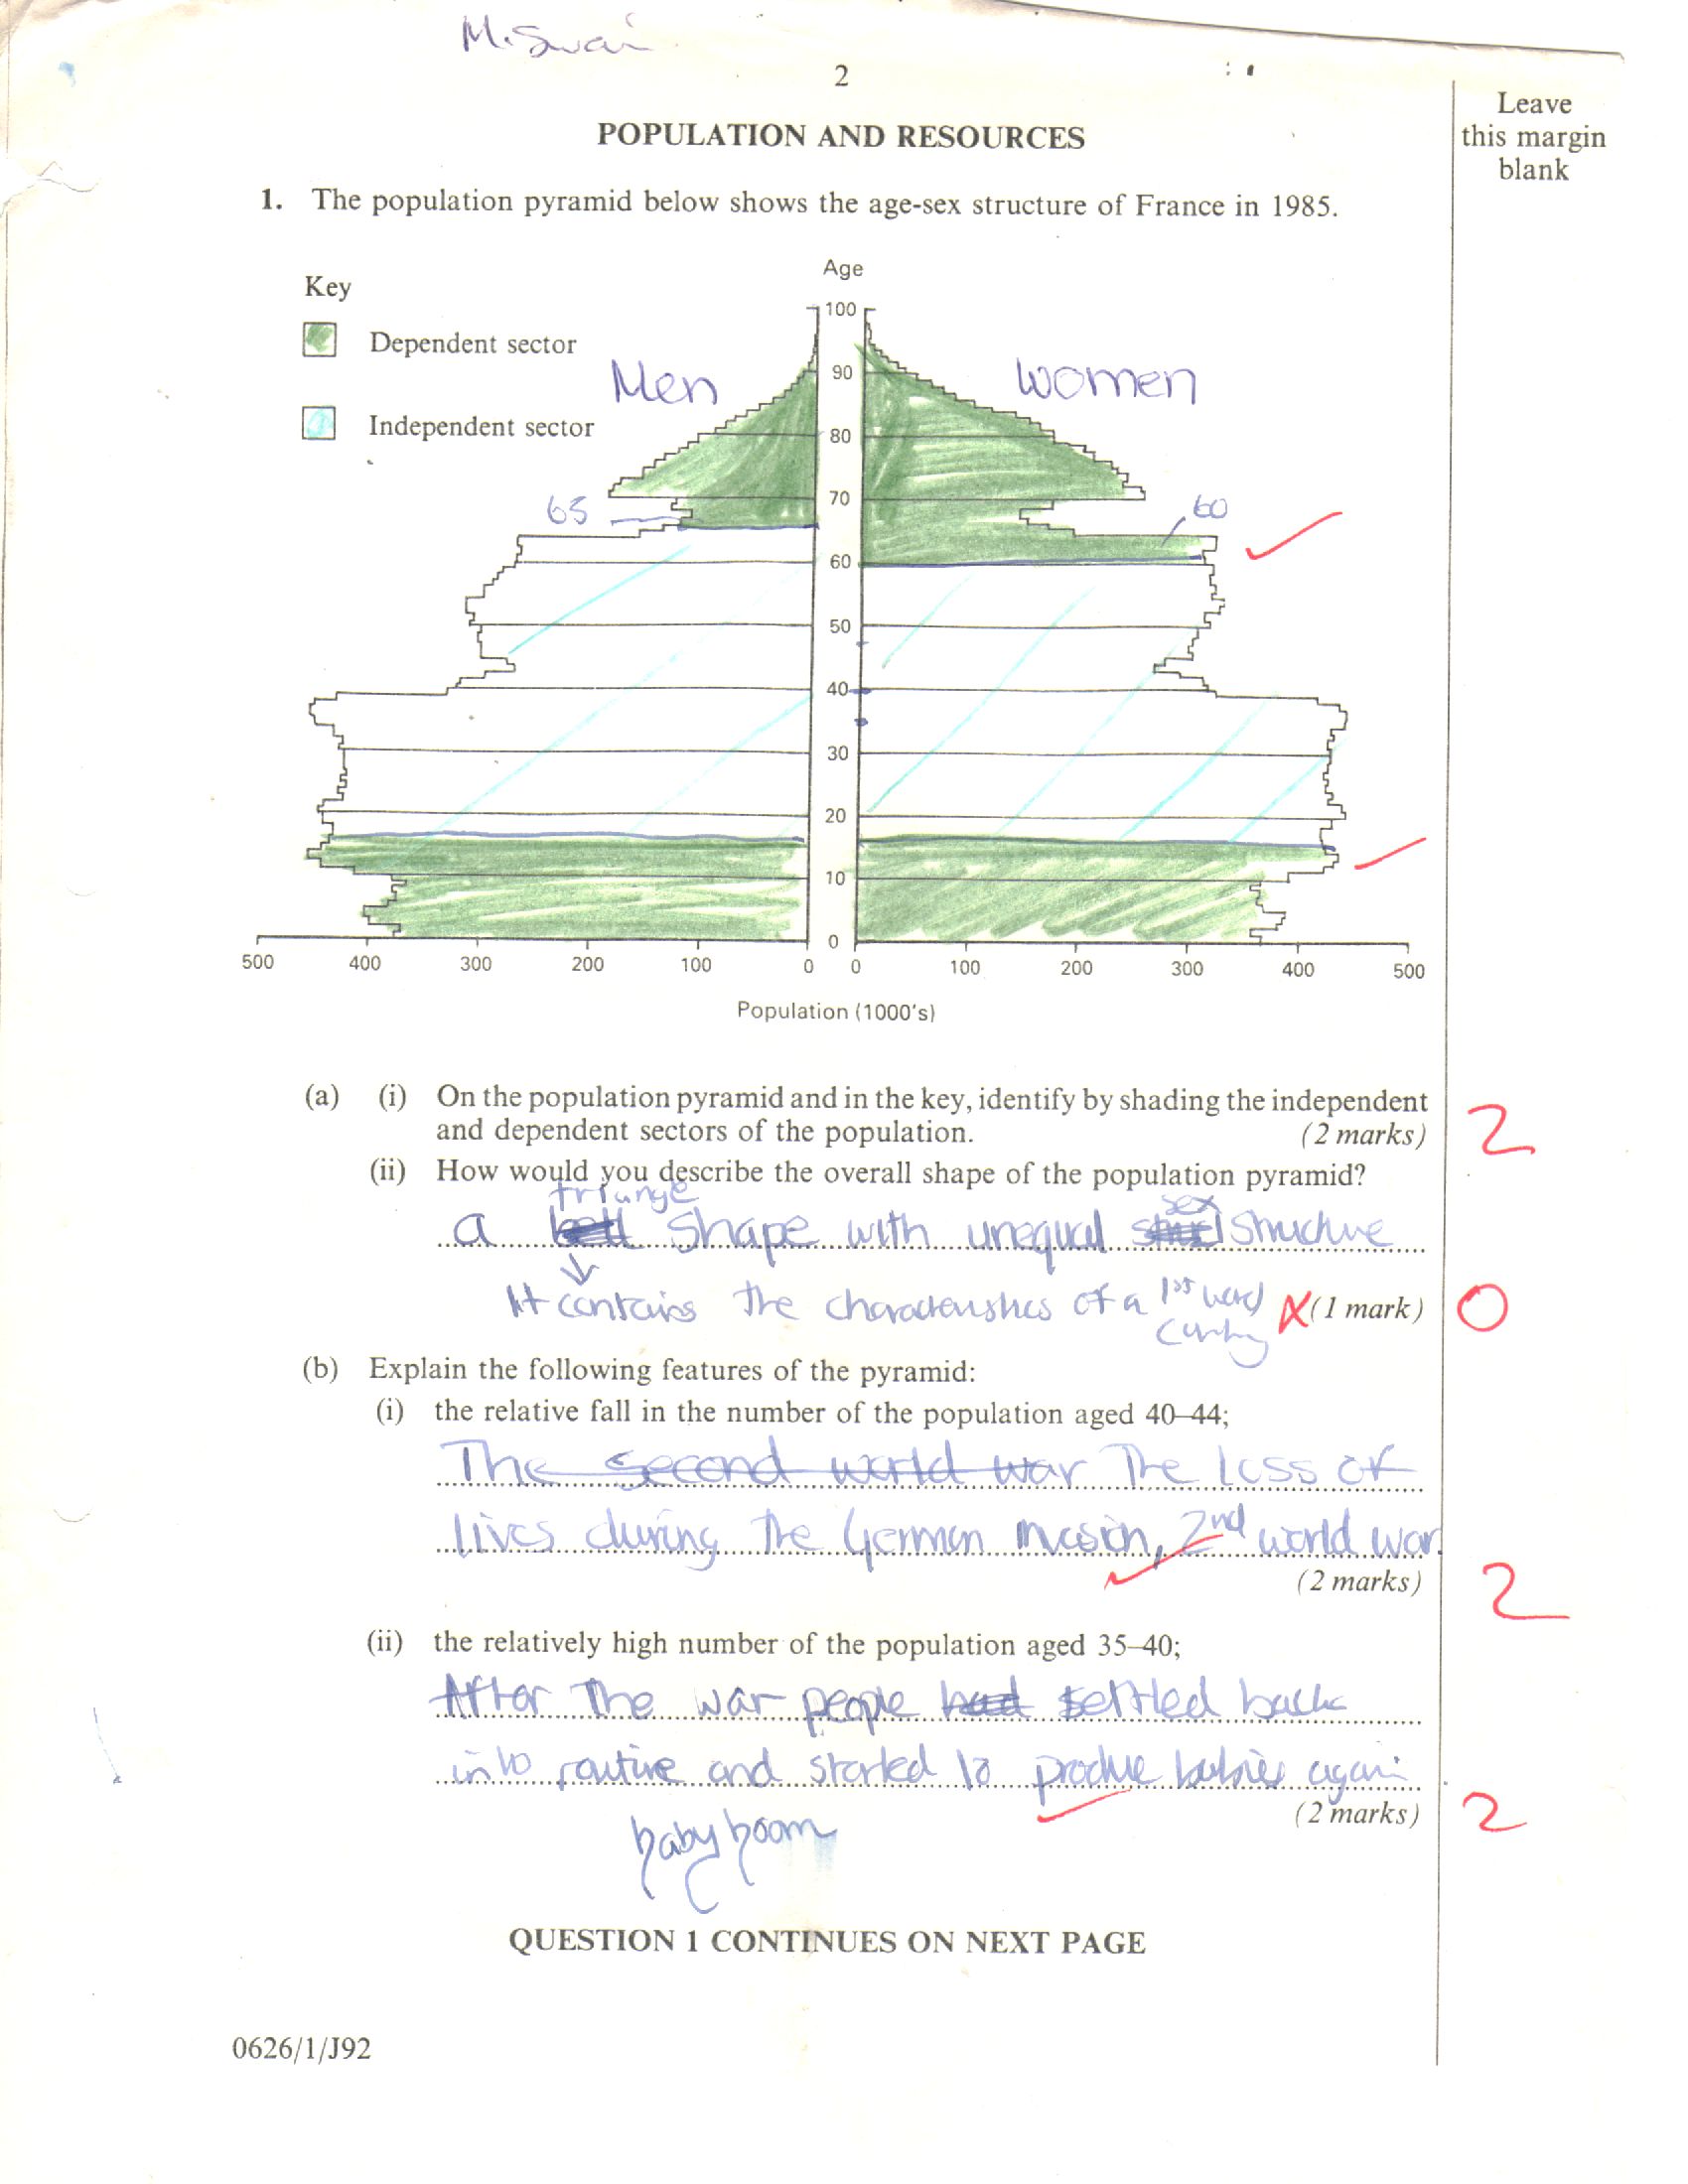 M. Swai
2
Leave
this margin
blank
POPULATION AND RESOURCES
1. The population pyramid below shows the age-sex structure of France in 1985.
Key
Dependent sector
Independent sector
Age
Men
Women
100
90
80
70
60
50
40
30
20
10
0
65
60
500 400 300 200 100 0 0 100 200 300 400 500
Population (1000's)
(a) (i) On the population pyramid and in the key, identify by shading the independent
and dependent sectors of the population. (2 marks) 2
(ii) How would you describe the overall shape of the population pyramid?
triange sex
a bell shape with unequal structure
It contains the characteristics of a 1st world
country
(1 mark) 0
(b) Explain the following features of the pyramid:
(i) the relative fall in the number of the population aged 40–44;
The second world war The loss of
lives during the German invasion, 2nd world war
(2 marks) 2
(ii) the relatively high number of the population aged 35–40;
After the war people had settled back
into routine and started to produe babies again
(2 marks) 2
baby boom
QUESTION 1 CONTINUES ON NEXT PAGE
0626/1/J92